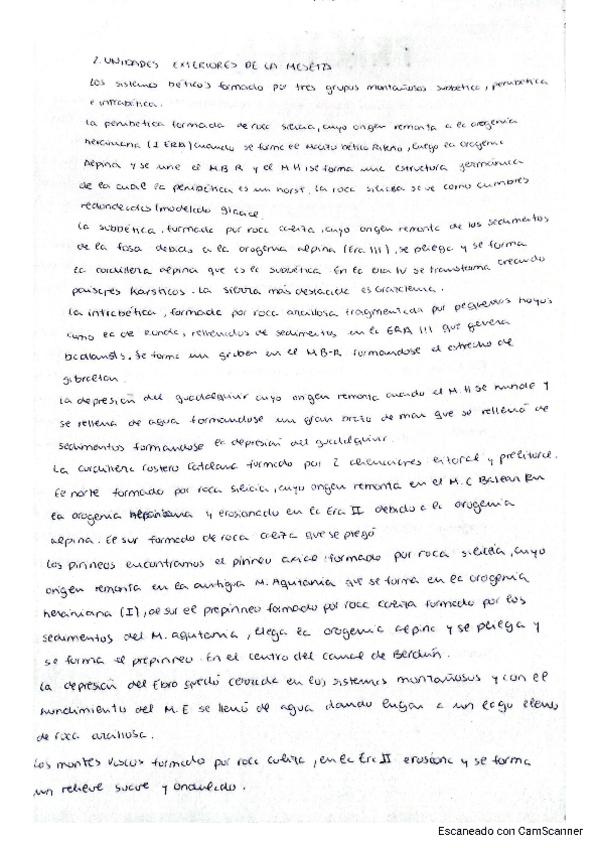 2. UNIDADES EXTERIORES DE LA MESETA
Los sistemas béticos formado por tres grupos montañosos subbética, penibética
e intrabética.
La penibética formada de roca silicia, cuyo origen remonta a la orogenia
herciniana (I ERA) cuando se forma el macizo bético Rifeño, luego la orogenia
Alpina y se une el M.B.R y el M.H se forma una estructura germánica
de la cual la penibética es un horst. La roca silicea se ve como cumbres
redondeadas/modelado glaciar.
La subbética, formada por roca caliza, cuyo origen remonta de los sedimentos
de la fosa debido a la orogenia alpina (Era III), se pliega y se forma
la cordillera alpina que es la subbética. En la Era IV se transforma creando
paisajes karsticos. La sierra más destacada es Grazalema.
La intrabética, formada por roca arcillosa fragmentada por pequeñas hoyas
como la de Ronda, rellenados de sedimentos en la ERA III que genera
badlands. Se forma un graben en el M.B-R formandose el estrecho de
gibraltar.
La depresión del guadalquivir cuyo origen remonta cuando el M.H se hunde y
se rellena de agua formandose un gran brazo de mar que se rellenó de
sedimentos formandose la depresión del guadalquivir.
La cordillera costero catalana formado por 2 alineaciones litoral y prelitoral.
El norte formado por roca silicia, cuyo origen remonta en el M.C Balear En
la orogenia herciniana y erosionado en la Era II debido a la orogenia
alpina. El sur formado de roca caliza que se plegó
Los pirineos encontramos el pirineo axial formado por roca silicia, cuyo
origen remonta en la antigua M. Aquitania que se forma en la orogenia
herciniana (I), al sur el prepirineo formado por roca caliza formado por los
sedimentos del M. aquitania, llega la orogenia alpina y se pliega y
se forma el prepirineo. En el centro del canal de Berdún.
La depresión del Ebro quedó cerrada en los sistemas montañosos y con el
hundimiento del M.E se llenó de agua dando lugar a un lago lleno
de roca arcillosa.
Los montes vascos formado por roca caliza, en la Era II erosiona y se forma
un relieve suave y ondulado.
Escaneado con CamScanner